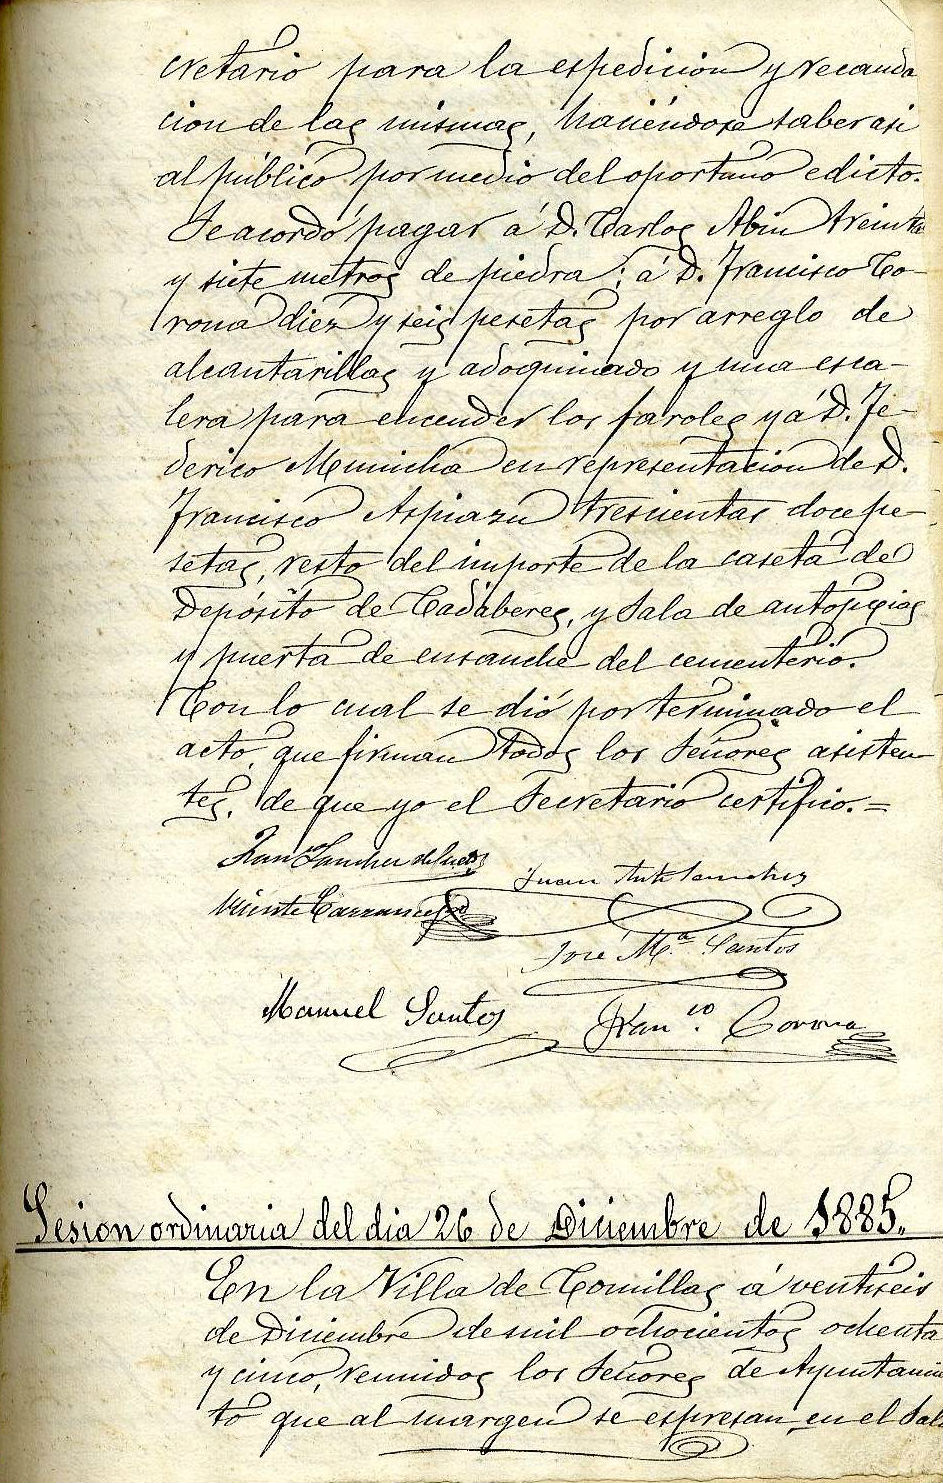 cretario para la espedicion y recauda
cion de las mismas, haciéndose saber asi
al público por medio del oportuno edicto.
Se acordó pagar á D. Carlos Abin treinta
y siete metros de piedra; á D. Francisco Co-
rona diez y seis pesetas por arreglo de
alcantarillas y adoquinado y una esca-
lera para encender los faroles y á D. Fe-
derico Muniche en representacion de D.
Francisco Aspiazu trescientas doce pe-
setas, resto del importe de la caseta de
Depósito de Cadáberes, y Sala de autopsias
y puerta de ensanche del cementerio.
Con lo cual se dió por terminado el
acto, que firman todos los Señores asisten-
tes, de que yo el Secretario certifico.=
Fran.co Sanchez
Juan Ant. Sanchez
Vicente
José M.a Santos
Manuel Santos
Fran.co Corona
Sesion ordinaria del dia 26 de Diciembre de 1885.
En la Villa de Comillas á ventiseis
de Diciembre de mil ochocientos ochenta
y cinco, reunidos los Señores de Ayuntamien
to que al margen se espresan en el Salo